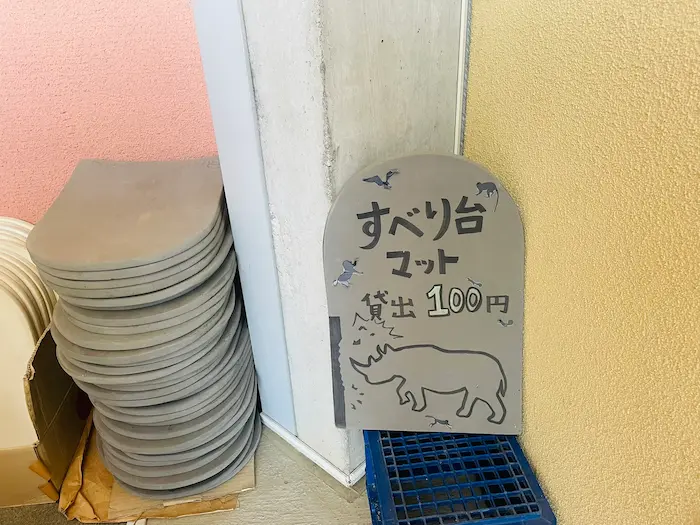 すべり台
マット
貸出 100円